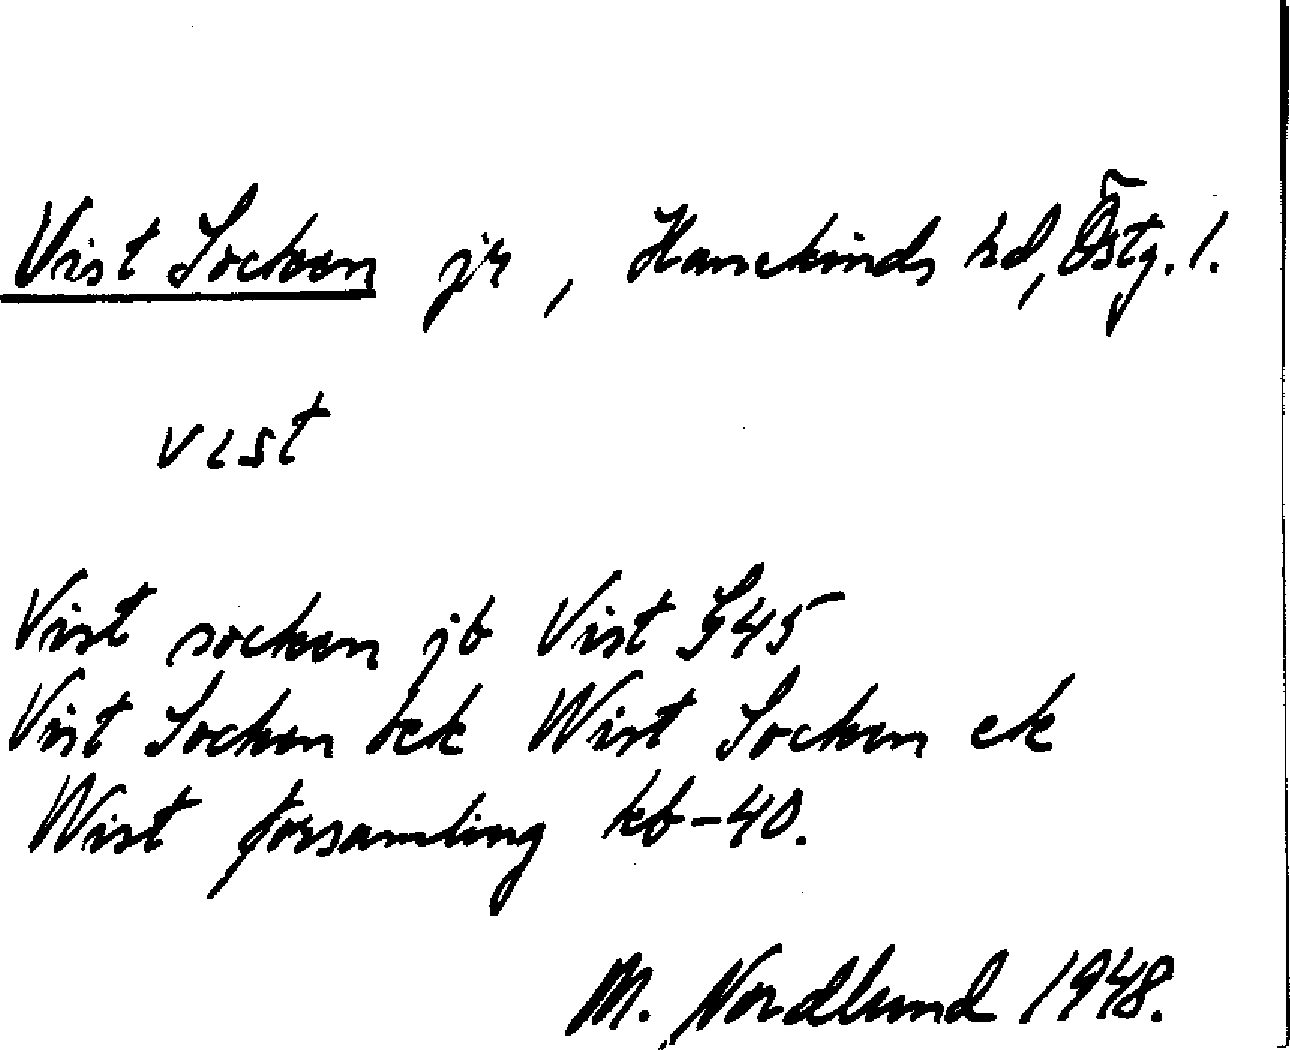 Vist Socken jr, Hanekinds hd, Östg. l.
vist
Vist socken jb Vist G45
Vist Socken bek Wist Socken ek
Wist församling kb-40.
M. Nordlund 1948.